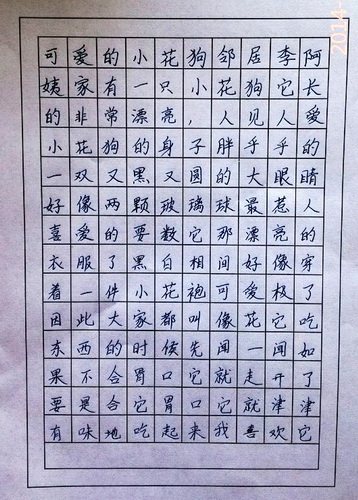 可爱的小花狗邻居李阿
姨家有一只小花狗它长
的非常漂亮，人见人爱
小花狗的身子胖乎乎的
一双又黑又圆的大眼睛
好像两颗玻璃球最惹人
喜爱的要数它那漂亮的
衣服了黑白相间好像穿
着一件小花袍可爱极了
因此大家都叫像花它吃
东西的时候先闻一闻如
果不合胃口它就走开了
要是合它胃口它就津津
有味地吃起来我喜欢它